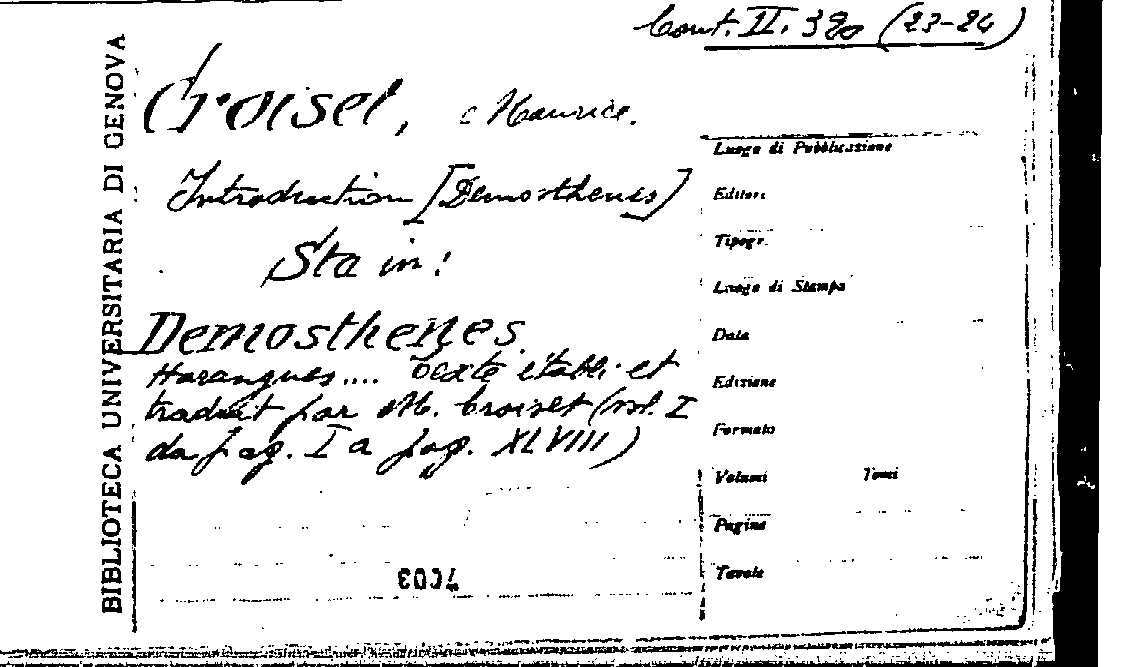 Cont. II. 390 (23-24)
BIBLIOTECA UNIVERSITARIA DI GENOVA
Croiset, Maurice.
Introduction [Demosthenes]
Sta in:
Demosthenes
Harangues.... Texte établi et
traduit par M. Croiset (vol. I
da pag. I a pag. XLVIII)
Luogo di Pubblicazione
Editori
Tipogr.
Luogo di Stampa
Data
Edizione
Formato
Volumi Tomi
Pagine
Tavole